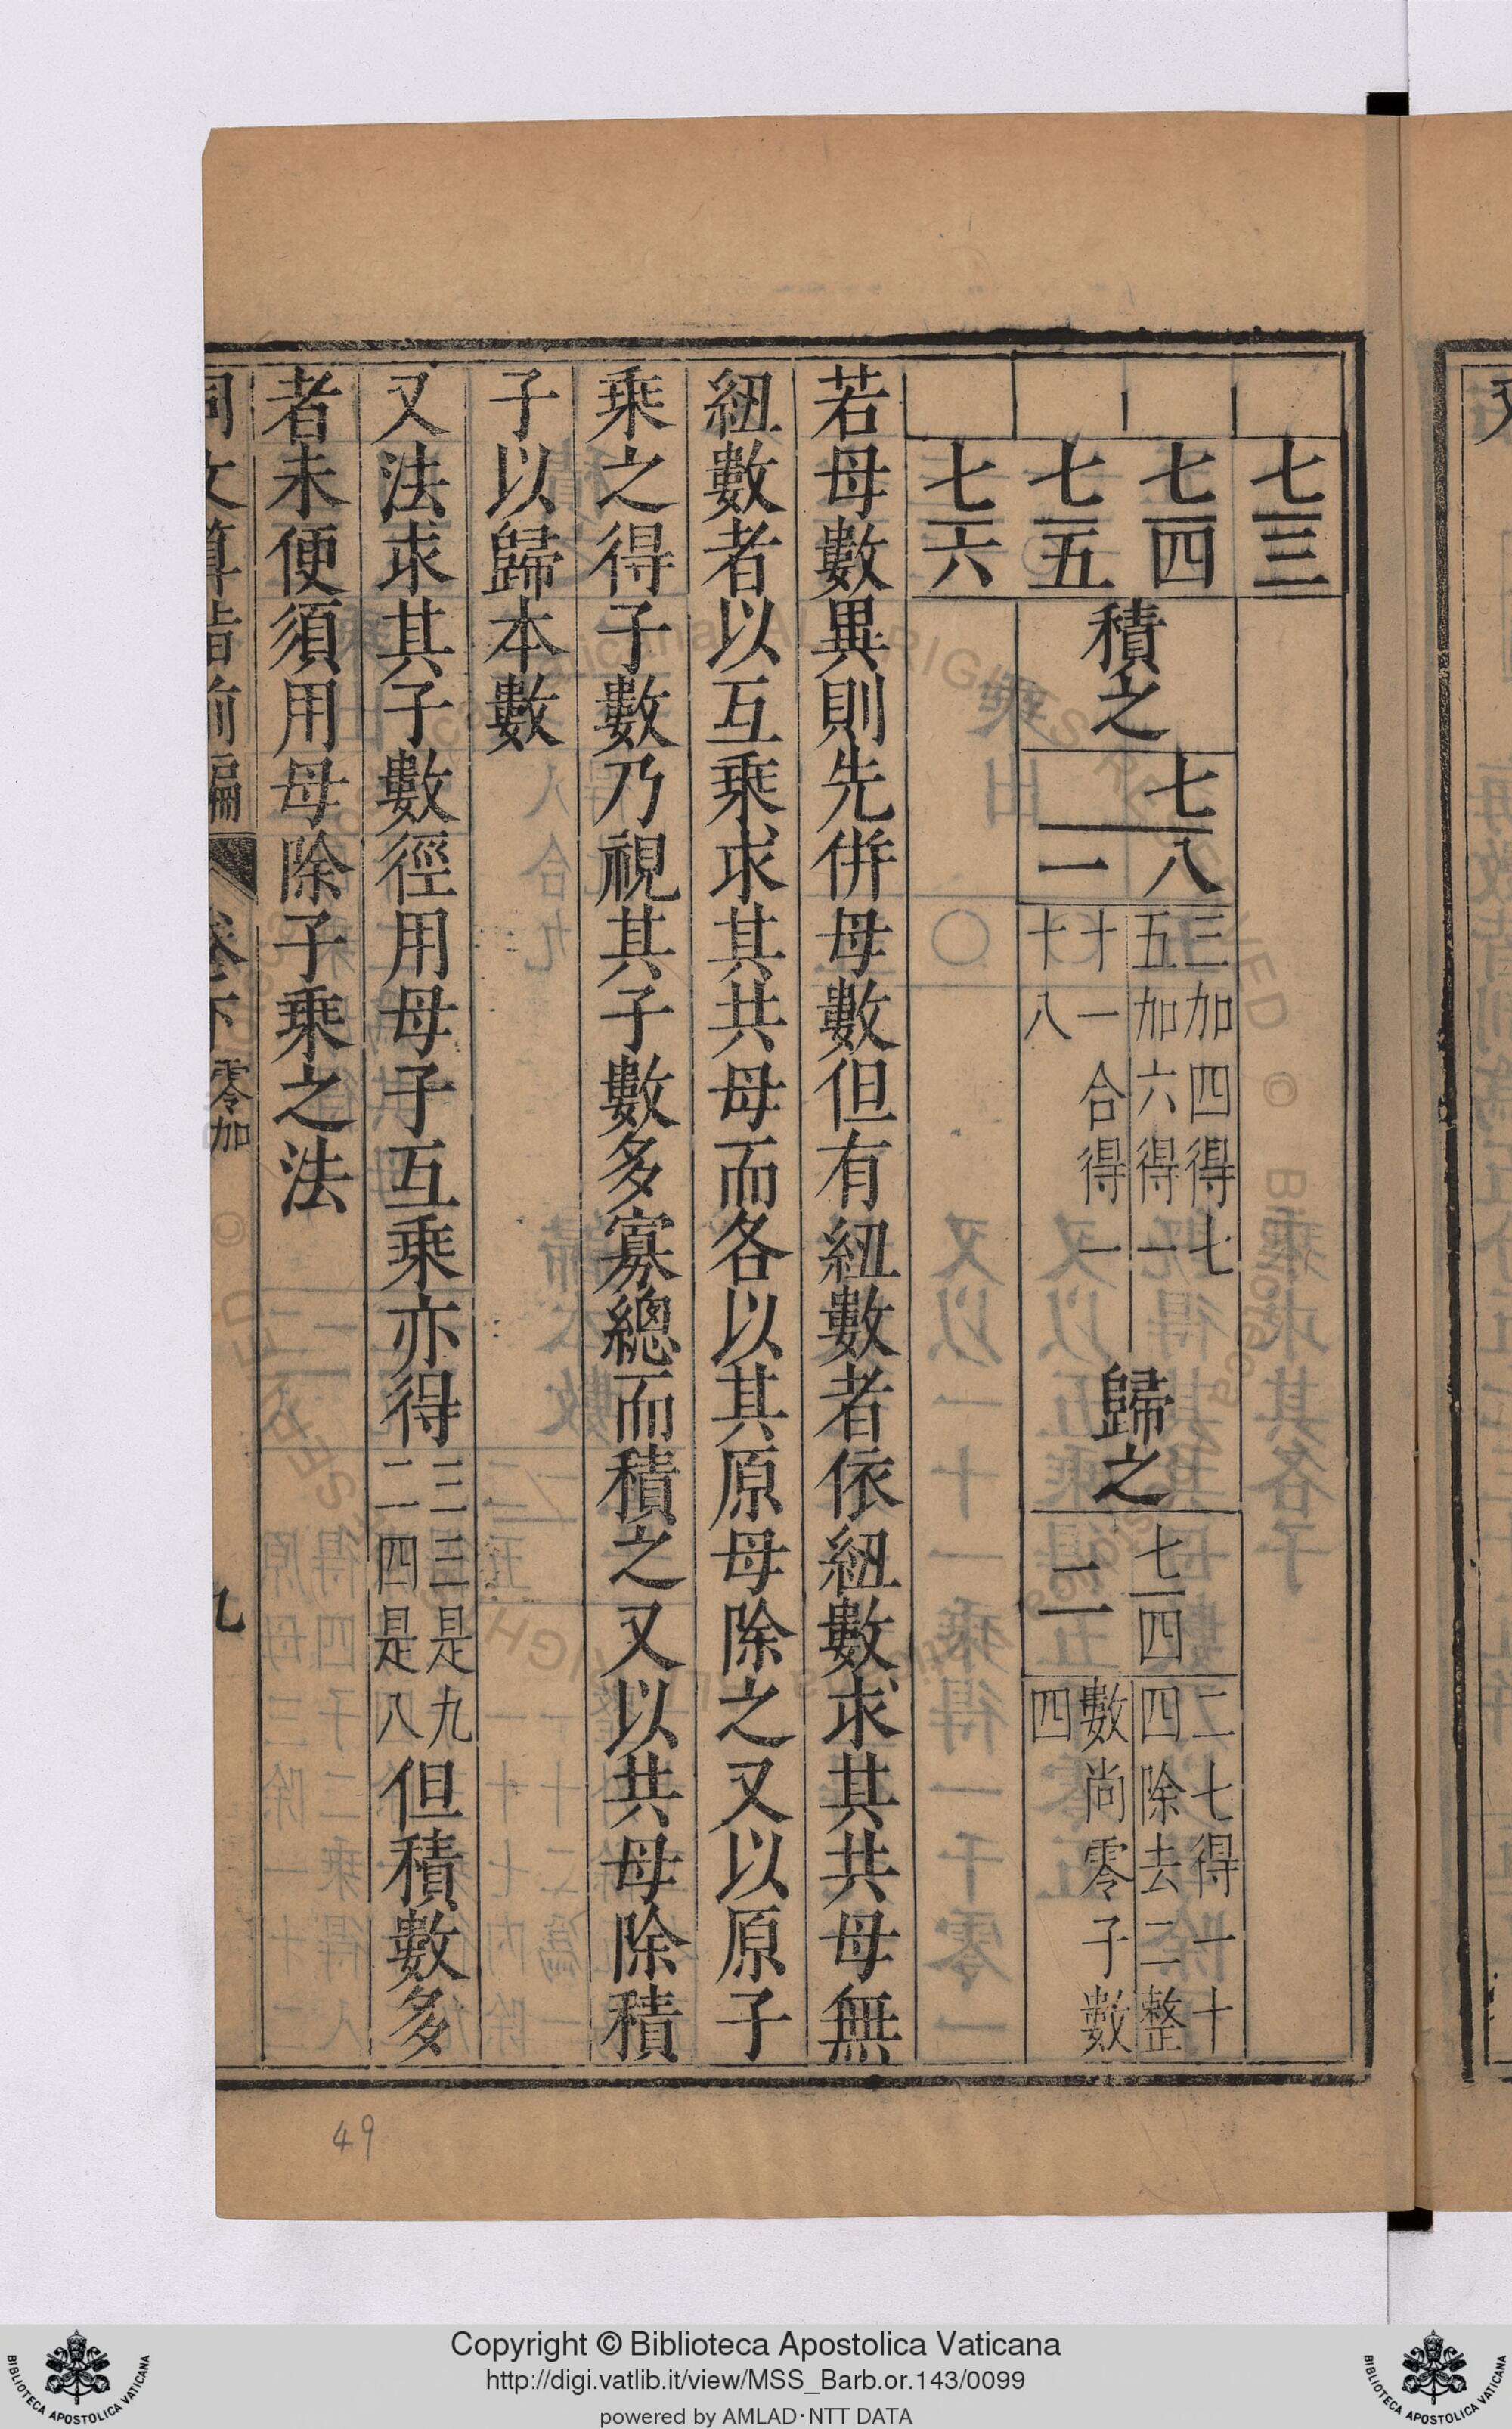 七三
七四
七五
七六
積之
七八
一
三加四得七
五加六得一
十一合得一
十八
歸之
七四
二
二七得一十
四除去二整
數尚零子數
四
若母數異則先併母數但有紐數者依紐數求其共母無
紐數者以互乘求其共母而各以其原母除之又以原子
乘之得子數乃視其子數多寡總而積之又以共母除積
子以歸本數
又法求其子數徑用母子互乘亦得三三是九二四是八但積數多
者未便須用母除子乘之法
同文算指前編 卷下 零加 九
49
Copyright © Biblioteca Apostolica Vaticana
http://digi.vatlib.it/view/MSS_Barb.or.143/0099
powered by AMLAD·NTT DATA
BIBLIOTECA APOSTOLICA VATICANA
BIBLIOTECA APOSTOLICA VATICANA